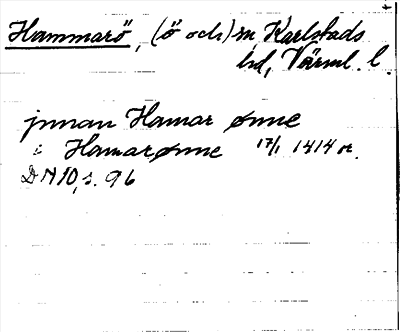 Hammarö, (ö och) sn, Karlstads
hd, Värml. l.
jnnan Hamar ønne
i Hamarønne 17/1 1414 or.
DN 10, s. 96